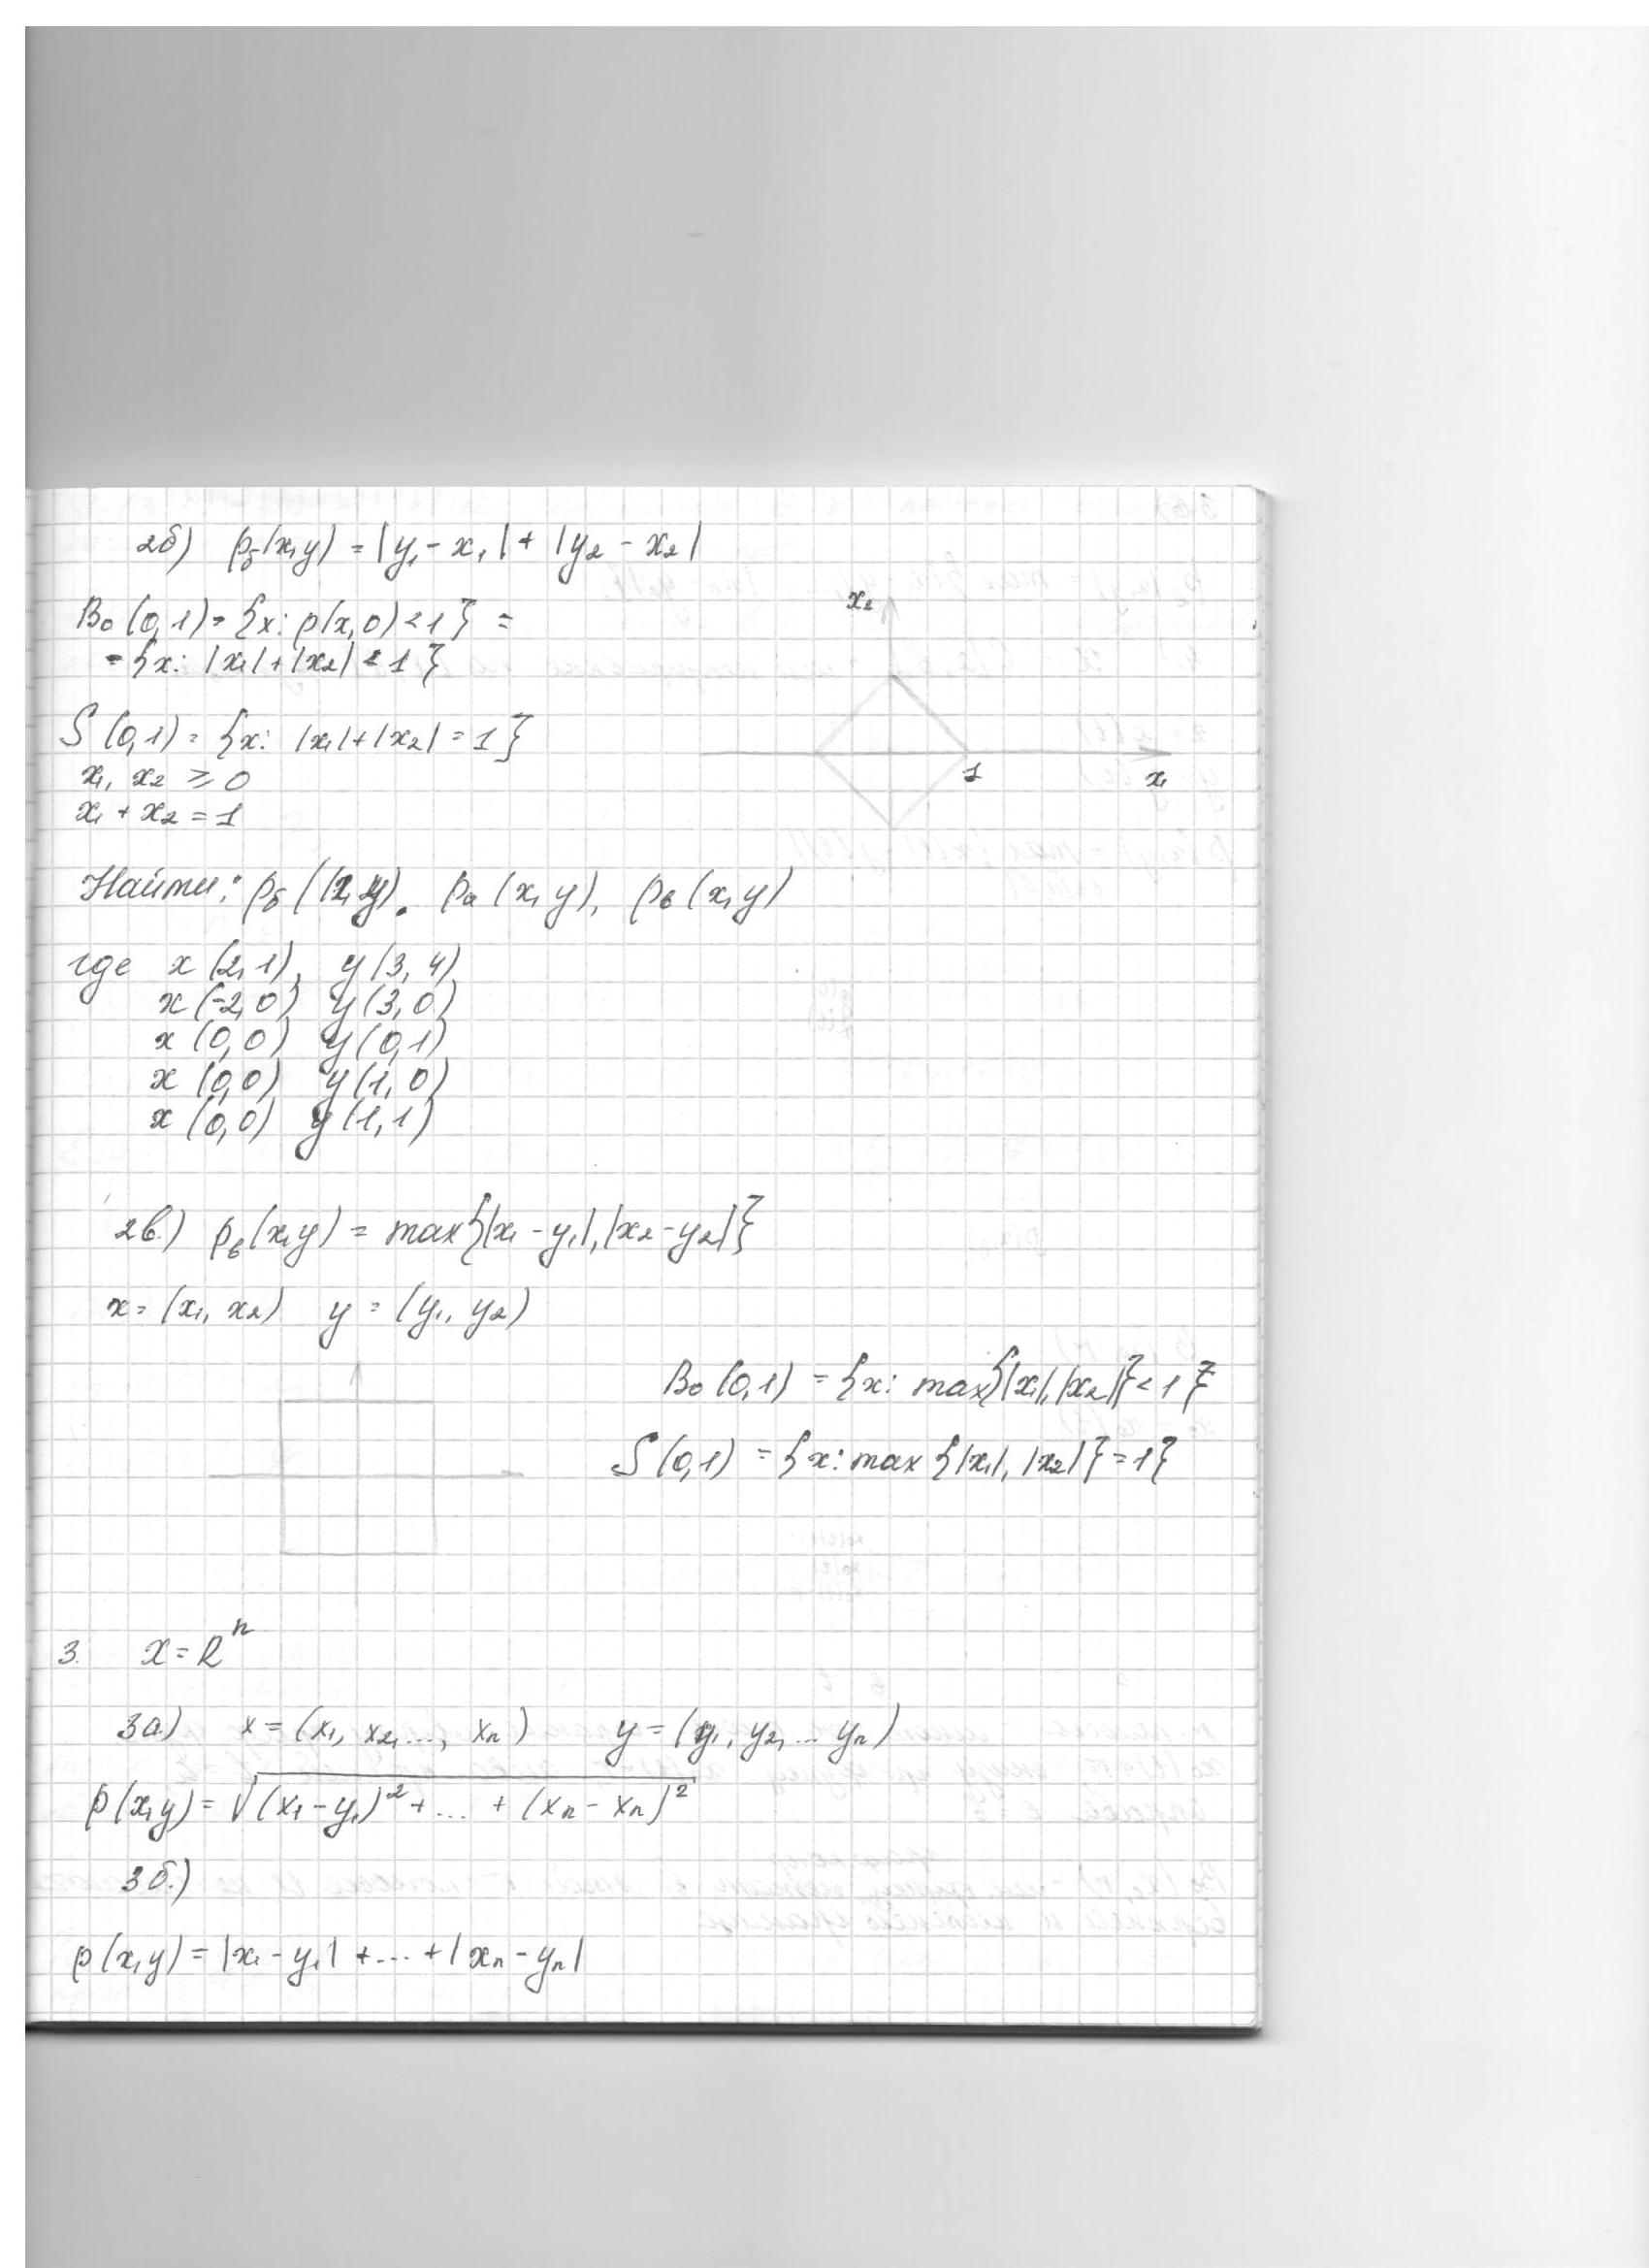 2б) ρб(x,y) = |y₁ - x₁| + |y₂ - x₂|
B₀(0,1) = {x: ρ(x,0) < 1} =
= {x: |x₁| + |x₂| < 1}
x₂
S(0,1) = {x: |x₁| + |x₂| = 1}
x₁, x₂ ⩾ 0
1
x₁
x₁ + x₂ = 1
Найти: ρб(x,y), ρа(x,y), ρв(x,y)
где x(2,1), y(3,4)
x(-2,0) y(3,0)
x(0,0) y(0,1)
x(0,0) y(1,0)
x(0,0) y(1,1)
2в.) ρв(x,y) = max{|x₁ - y₁|, |x₂ - y₂|}
x = (x₁, x₂) y = (y₁, y₂)
B₀(0,1) = {x: max{|x₁|, |x₂|} < 1}
S(0,1) = {x: max{|x₁|, |x₂|} = 1}
3. X = Rⁿ
3а.) x = (x₁, x₂, ..., xₙ) y = (y₁, y₂, ... yₙ)
ρ(x,y) = √((x₁ - y₁)² + ... + (xₙ - xₙ)²)
3б.)
ρ(x,y) = |x₁ - y₁| + ... + |xₙ - yₙ|